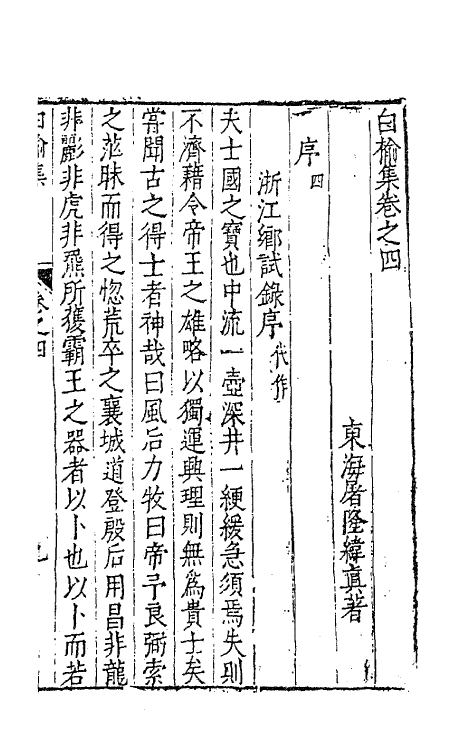 白榆集卷之四
東海屠隆緯真著
序四
浙江鄉試錄序代作
夫士國之寶也中流一壺深井一綆緩急須焉失則
不濟藉令帝王之雄略以獨運興理則無爲貴士矣
嘗聞古之得士者神哉曰風后力牧曰帝予良弼索
之茫昧而得之惚荒卒之襄城道登殷后用昌非龍
非彲非虎非羆所獲霸王之器者以卜也以卜而若
白榆集
卷之四